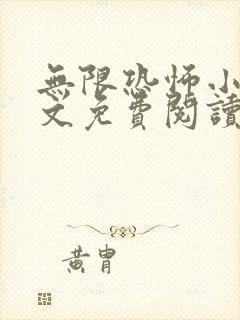 無限恐怖小
文免費閱讀
黄胄